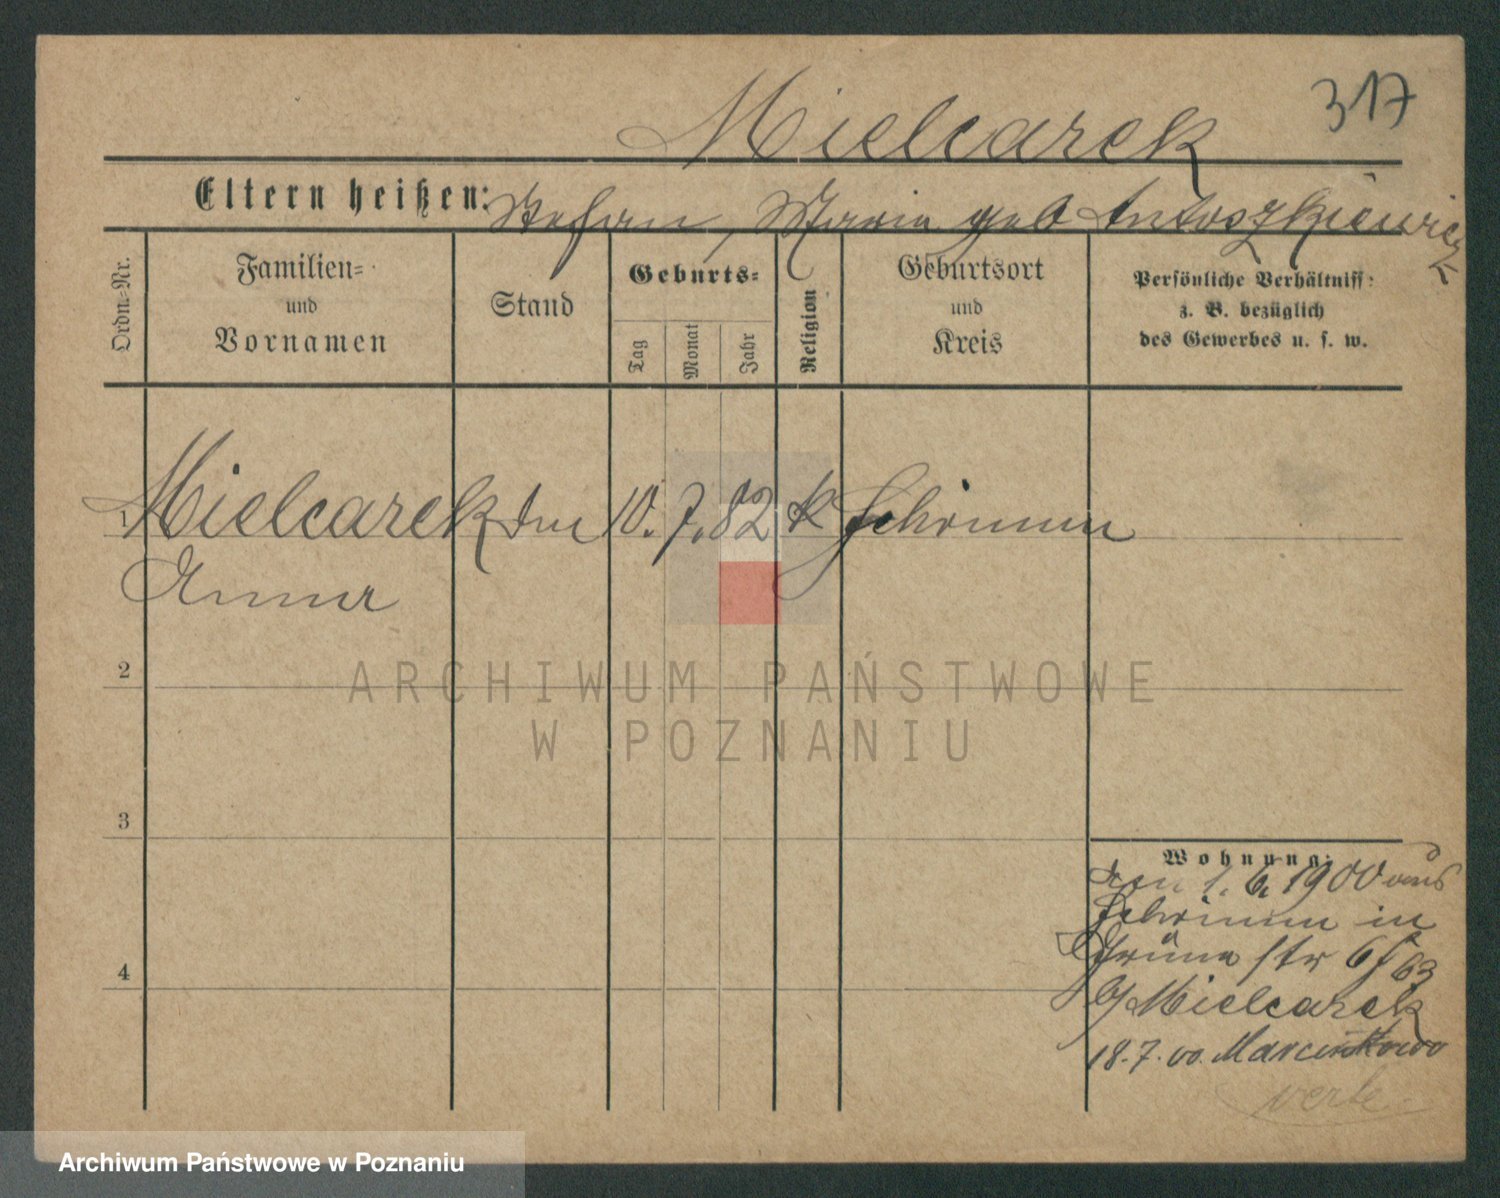 317
Mielcarek
Eltern heißen: Stefan, Maria geb Antoszkiewicz
Ordn.-Nr.
Familien-
und
Vornamen
Stand
Geburts-
Tag
Monat
Jahr
Religion
Geburtsort
und
Kreis
Persönliche Verhältniss:
z. B. bezüglich
des Gewerbes u. s. w.
1 Mielcarek den 10. 7. 82 k Schrimm
Anna
2
ARCHIWUM PAŃSTWOWE
W POZNANIU
3
4
Wohnung:
den 1. 6. 1900 aus
Schrimm in
Grüne str 6
b/ Mielcarek
18. 7. 00. Marcinkowo
Archiwum Państwowe w Poznaniu